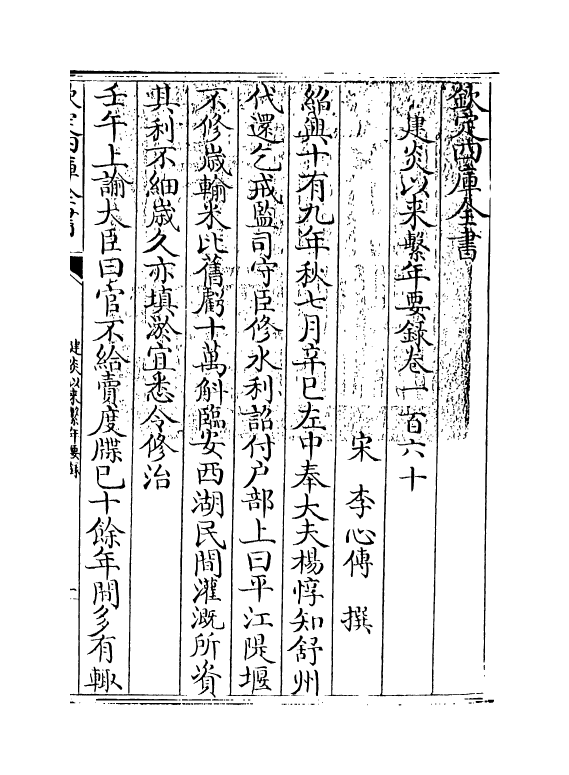 欽定四庫全書
建炎以来繫年要録卷一百六十
宋 李心傳 撰
紹興十有九年秋七月辛巳左中奉大夫楊惇知舒州
代還乞戒監司守臣修水利詔付户部上曰平江隄堰
不修歳輸米比舊虧十萬斛臨安西湖民間灌溉所資
其利不細歳久亦填淤宜悉令修治
壬午上諭大臣曰官不給賣度牒已十餘年間多有輙
欽定四庫全書
建炎以来繫年要録
一